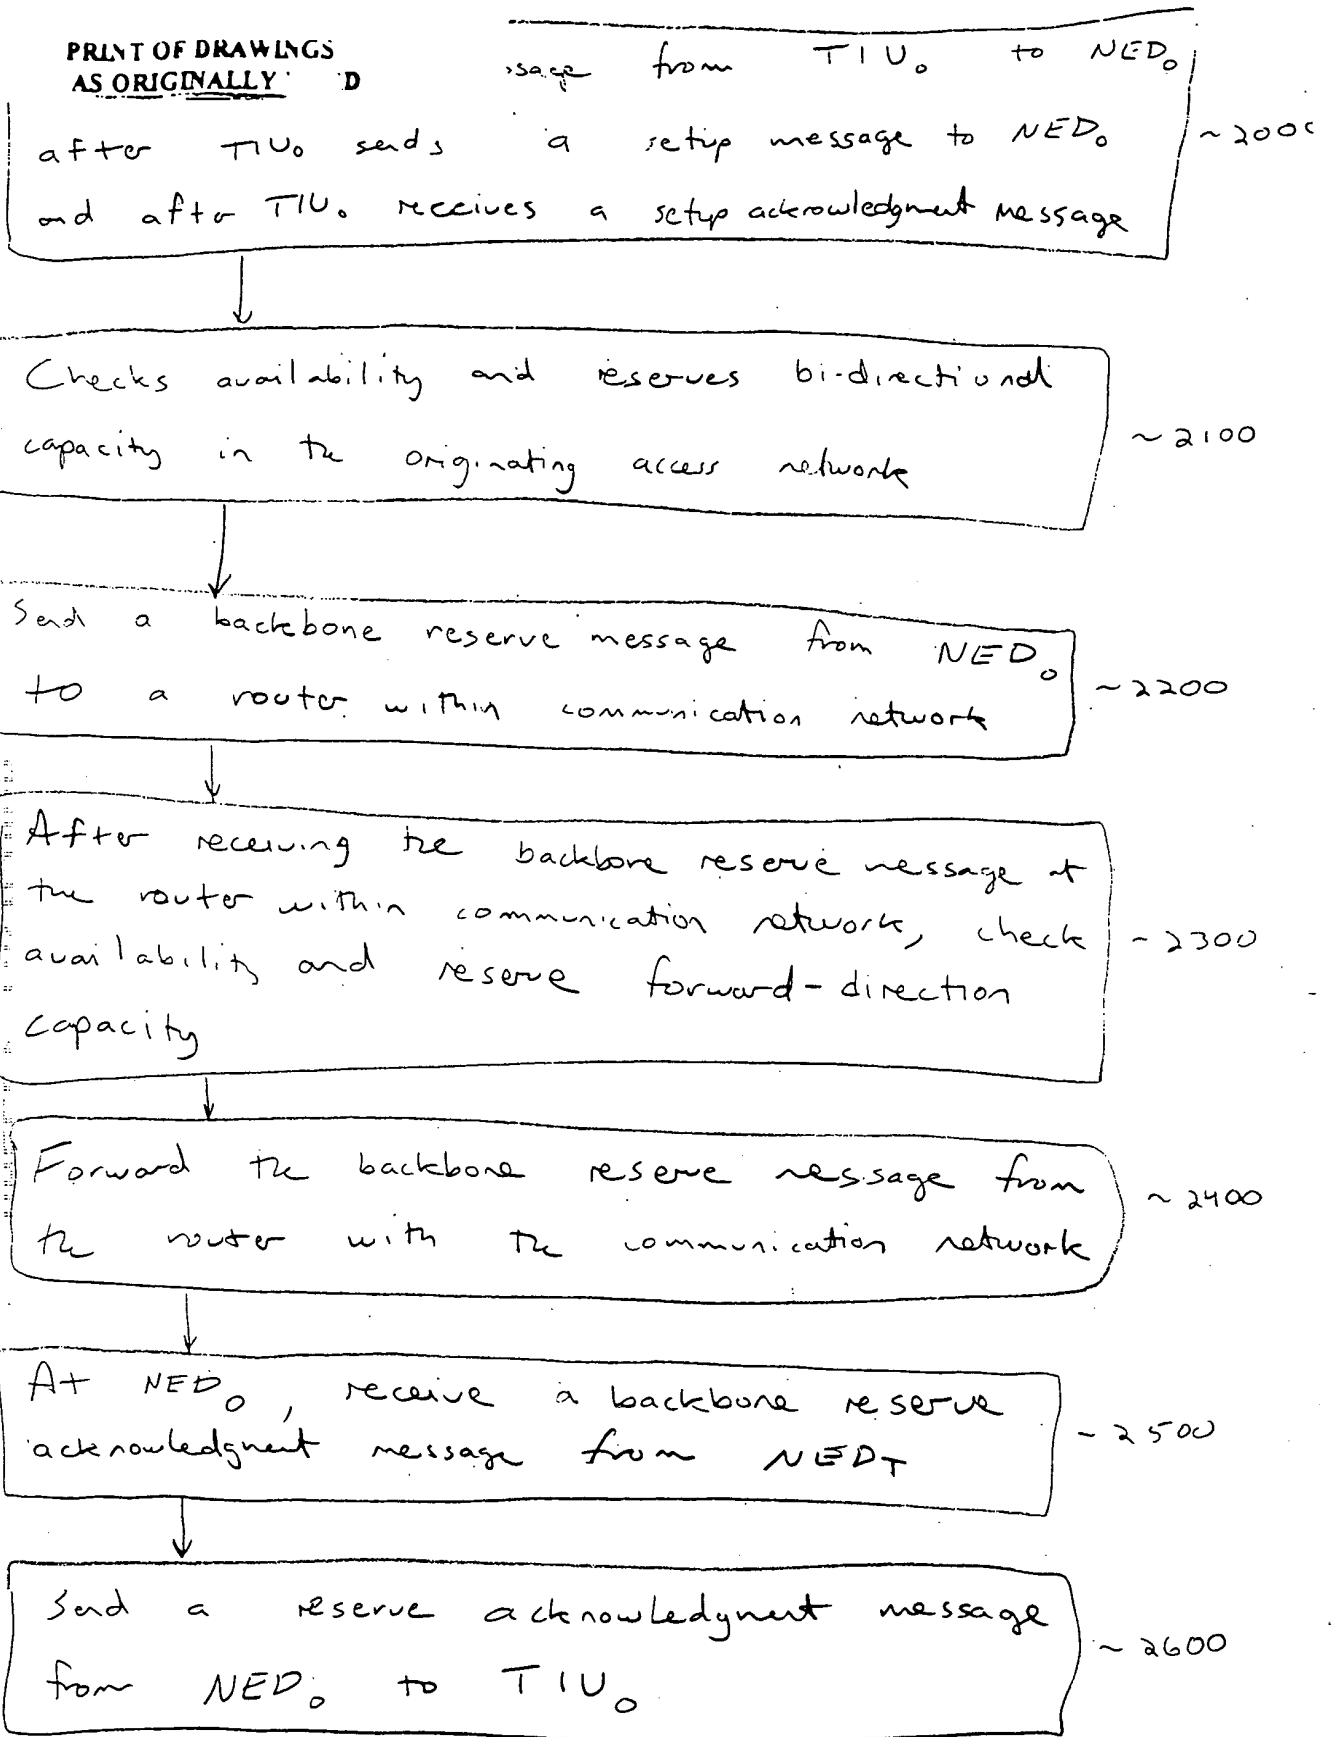 PRINT OF DRAWINGS
AS ORIGINALLY D
from TIU₀ to NED₀
after TIU₀ sends a setup message to NED₀ ~200
and after TIU₀ receives a setup acknowledgment message
Checks availability and reserves bi-directional
capacity in the originating access network ~2100
Send a backbone reserve message from NED₀
to a router within communication network ~2200
After receiving the backbone reserve message at
the router within communication network, check ~2300
availability and reserve forward-direction
capacity
Forward the backbone reserve message from ~2400
the router with the communication network
At NED₀, receive a backbone reserve
acknowledgment message from NEDT ~2500
Send a reserve acknowledgment message
from NED₀ to TIU₀ ~2600